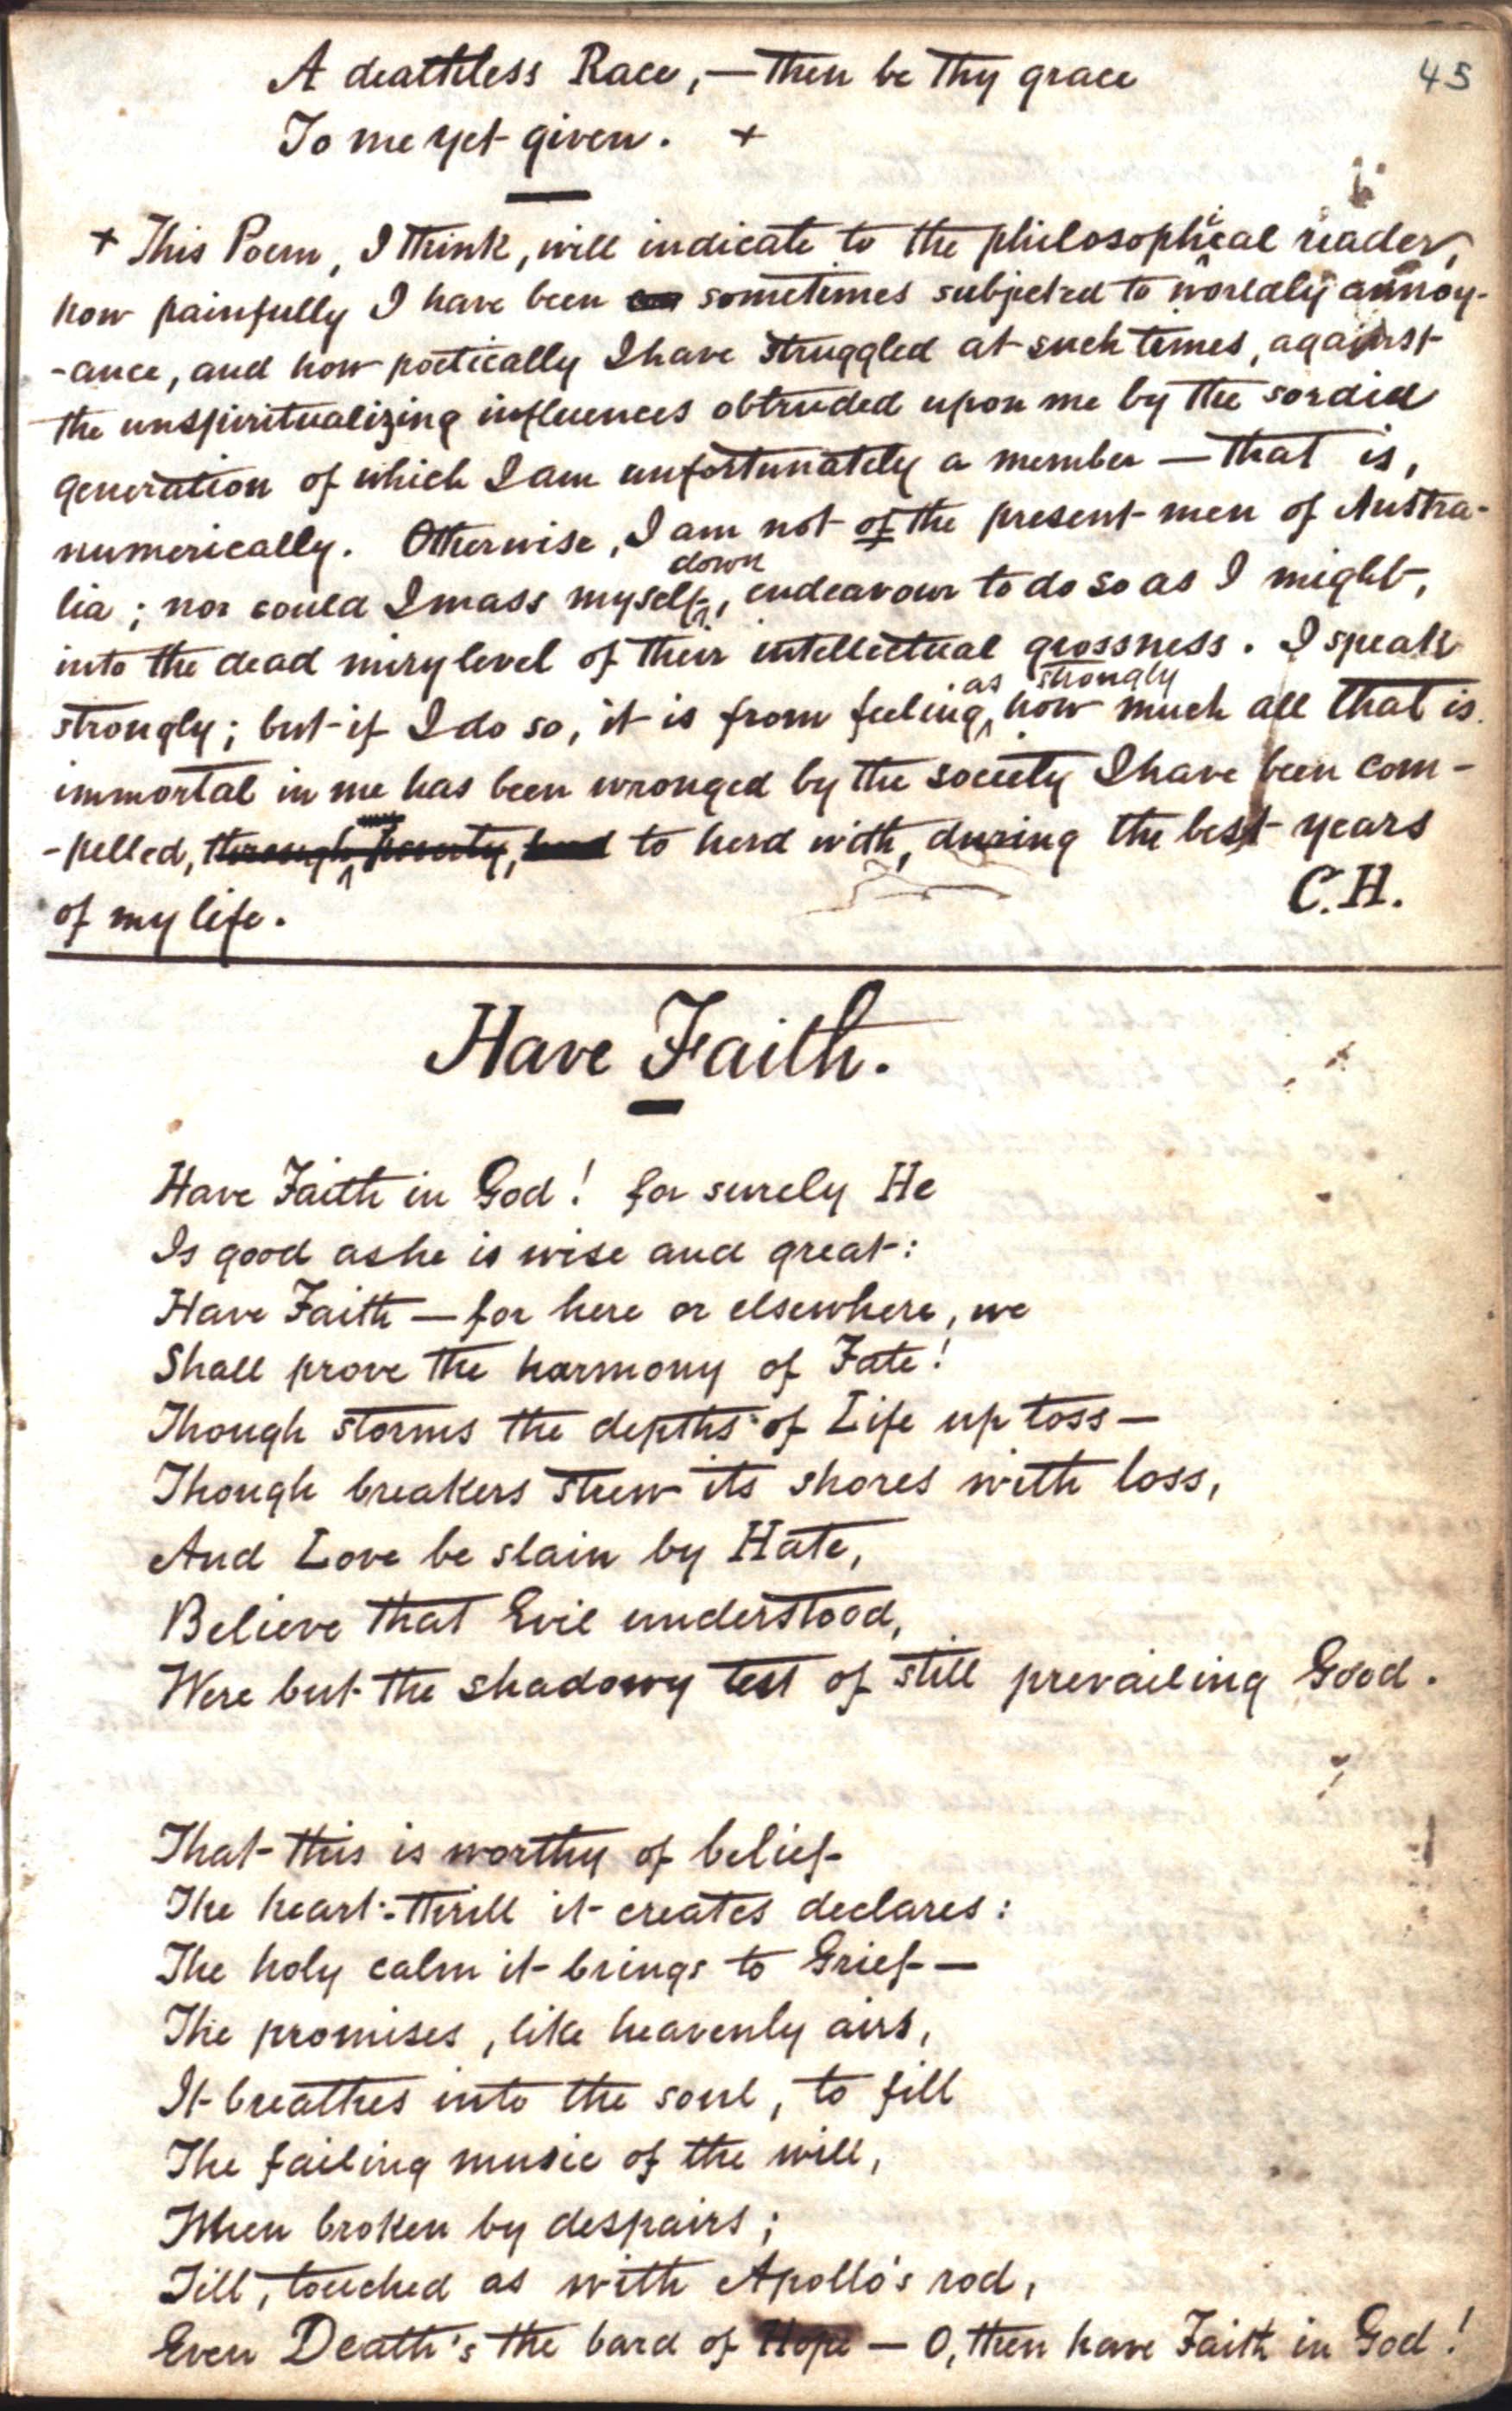 45
A deathless Race, — then be thy grace
To me yet given. +
+ This Poem, I think, will indicate to the philosophical reader,
how painfully I have been sometimes subjected to worldly annoy-
-ance, and how poetically I have struggled at such times, against
the unspiritualizing influences obtruded upon me by the sordid
generation of which I am unfortunately a member — that is,
numerically. Otherwise, I am not of the present men of Austra-
lia; nor could I mass myself down, endeavour to do so as I might,
into the dead miry level of their intellectual grossness. I speak
strongly; but if I do so, it is from feeling as strongly how much all that is
immortal in me has been wronged by the society I have been com-
-pelled, through poverty, to herd with, during the best years
of my life.
C.H.
Have Faith.
Have Faith in God! for surely He
Is good as he is wise and great:
Have Faith — for here or elsewhere, we
Shall prove the harmony of Fate!
Though storms the depths of Life up toss —
Though breakers strew its shores with loss,
And Love be slain by Hate,
Believe that Evil understood,
Were but the shadowy test of still prevailing Good.
That this is worthy of belief
The heart-thrill it creates declares:
The holy calm it brings to Grief —
The promises, like heavenly airs,
It breathes into the soul, to fill
The failing music of the will,
When broken by despairs;
Till, touched as with Apollo's rod,
Even Death's the bard of Hope — O, then have Faith in God!